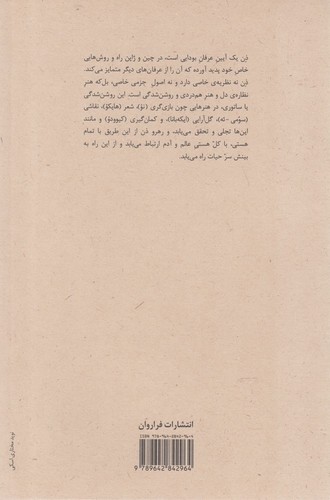 ذِن یک آیین عرفان بودایی است، در چین و ژاپن راه و روش‌هایی
خاص خود پدید آورده که آن را از عرفان‌های دیگر متمایز می‌کند.
ذن نه نظریه‌ی خاصی دارد و نه اصولِ جزمی خاصی، بل‌که هنر
نظاره‌ی دل و هنرِ هم‌دردی و روشن‌شدگی است. این روشن‌شدگی
یا ساتوری، در هنرهایی چون بازی‌گری (نُوْ)، شعر (هایکوْ)، نقاشی
(سوٓمی-ئه)، گل‌آرایی (ایکه‌بانا)، و کمان‌گیری (کیوٓدوْ) و مانند
این‌ها تجلی و تحقق می‌یابد، و رهرو ذن از این طریق با تمام
هستی، با کلِّ هستی عالم و آدم ارتباط می‌یابد و از این راه به
بینش سرِّ حیات راه می‌یابد.
انتشارات فراروان
9 789642 842964